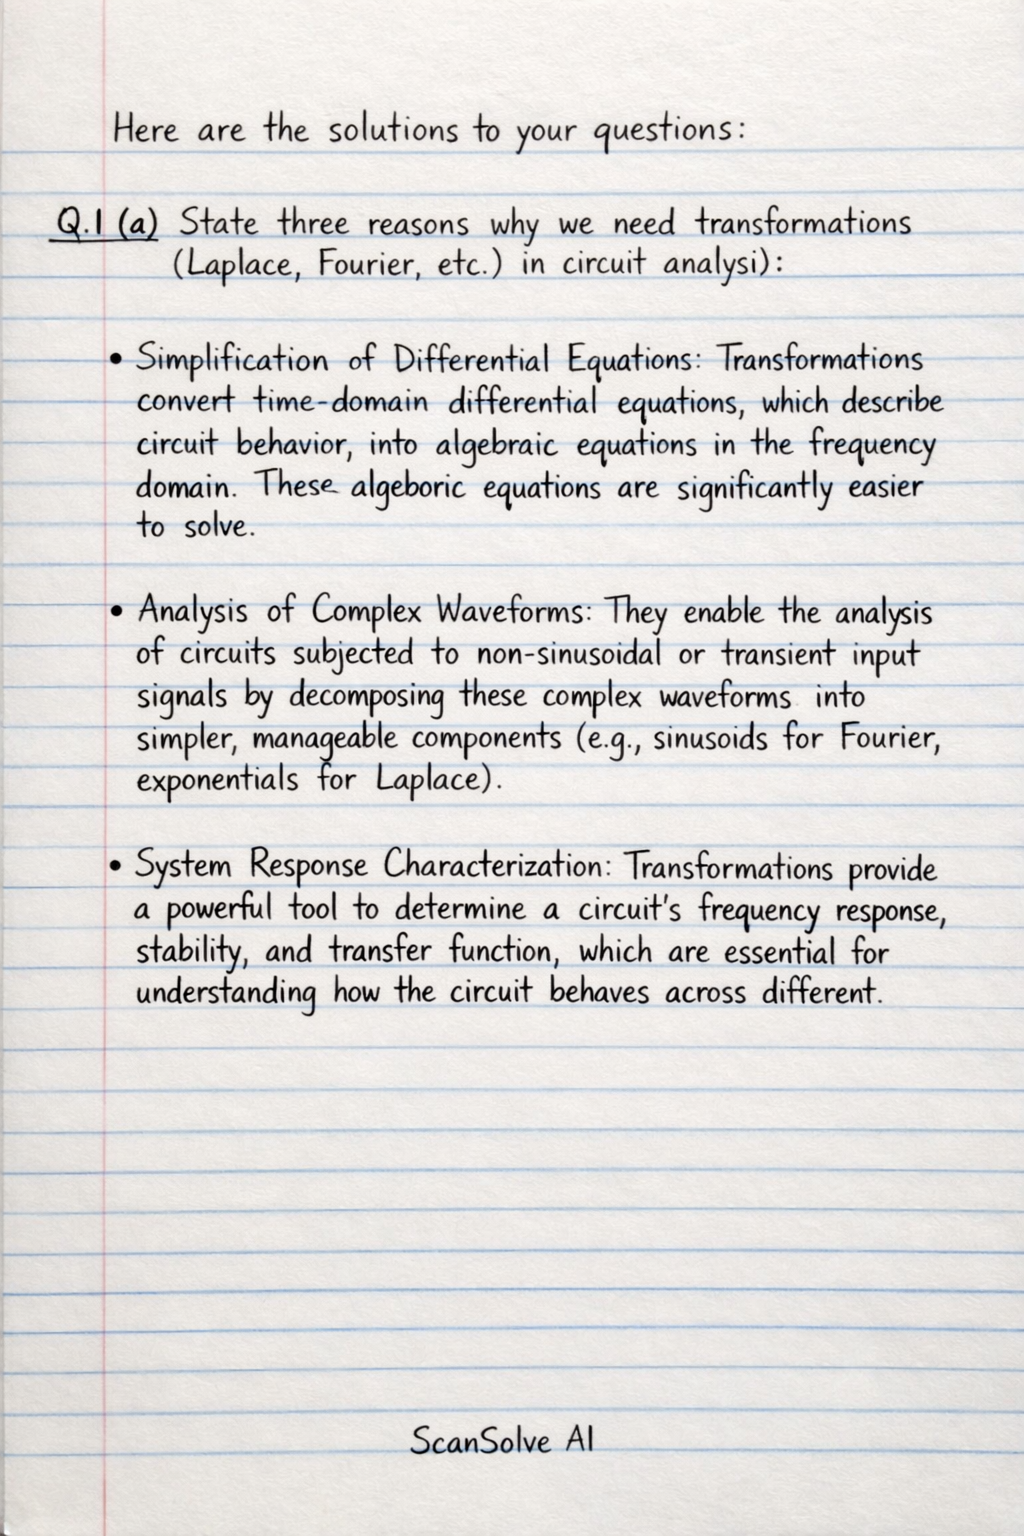 Here are the solutions to your questions:
Q.1 (a) State three reasons why we need transformations
(Laplace, Fourier, etc.) in circuit analysi):
• Simplification of Differential Equations: Transformations
convert time-domain differential equations, which describe
circuit behavior, into algebraic equations in the frequency
domain. These algeboric equations are significantly easier
to solve.
• Analysis of Complex Waveforms: They enable the analysis
of circuits subjected to non-sinusoidal or transient input
signals by decomposing these complex waveforms into
simpler, manageable components (e.g., sinusoids for Fourier,
exponentials for Laplace).
• System Response Characterization: Transformations provide
a powerful tool to determine a circuit's frequency response,
stability, and transfer function, which are essential for
understanding how the circuit behaves across different.
ScanSolve AI